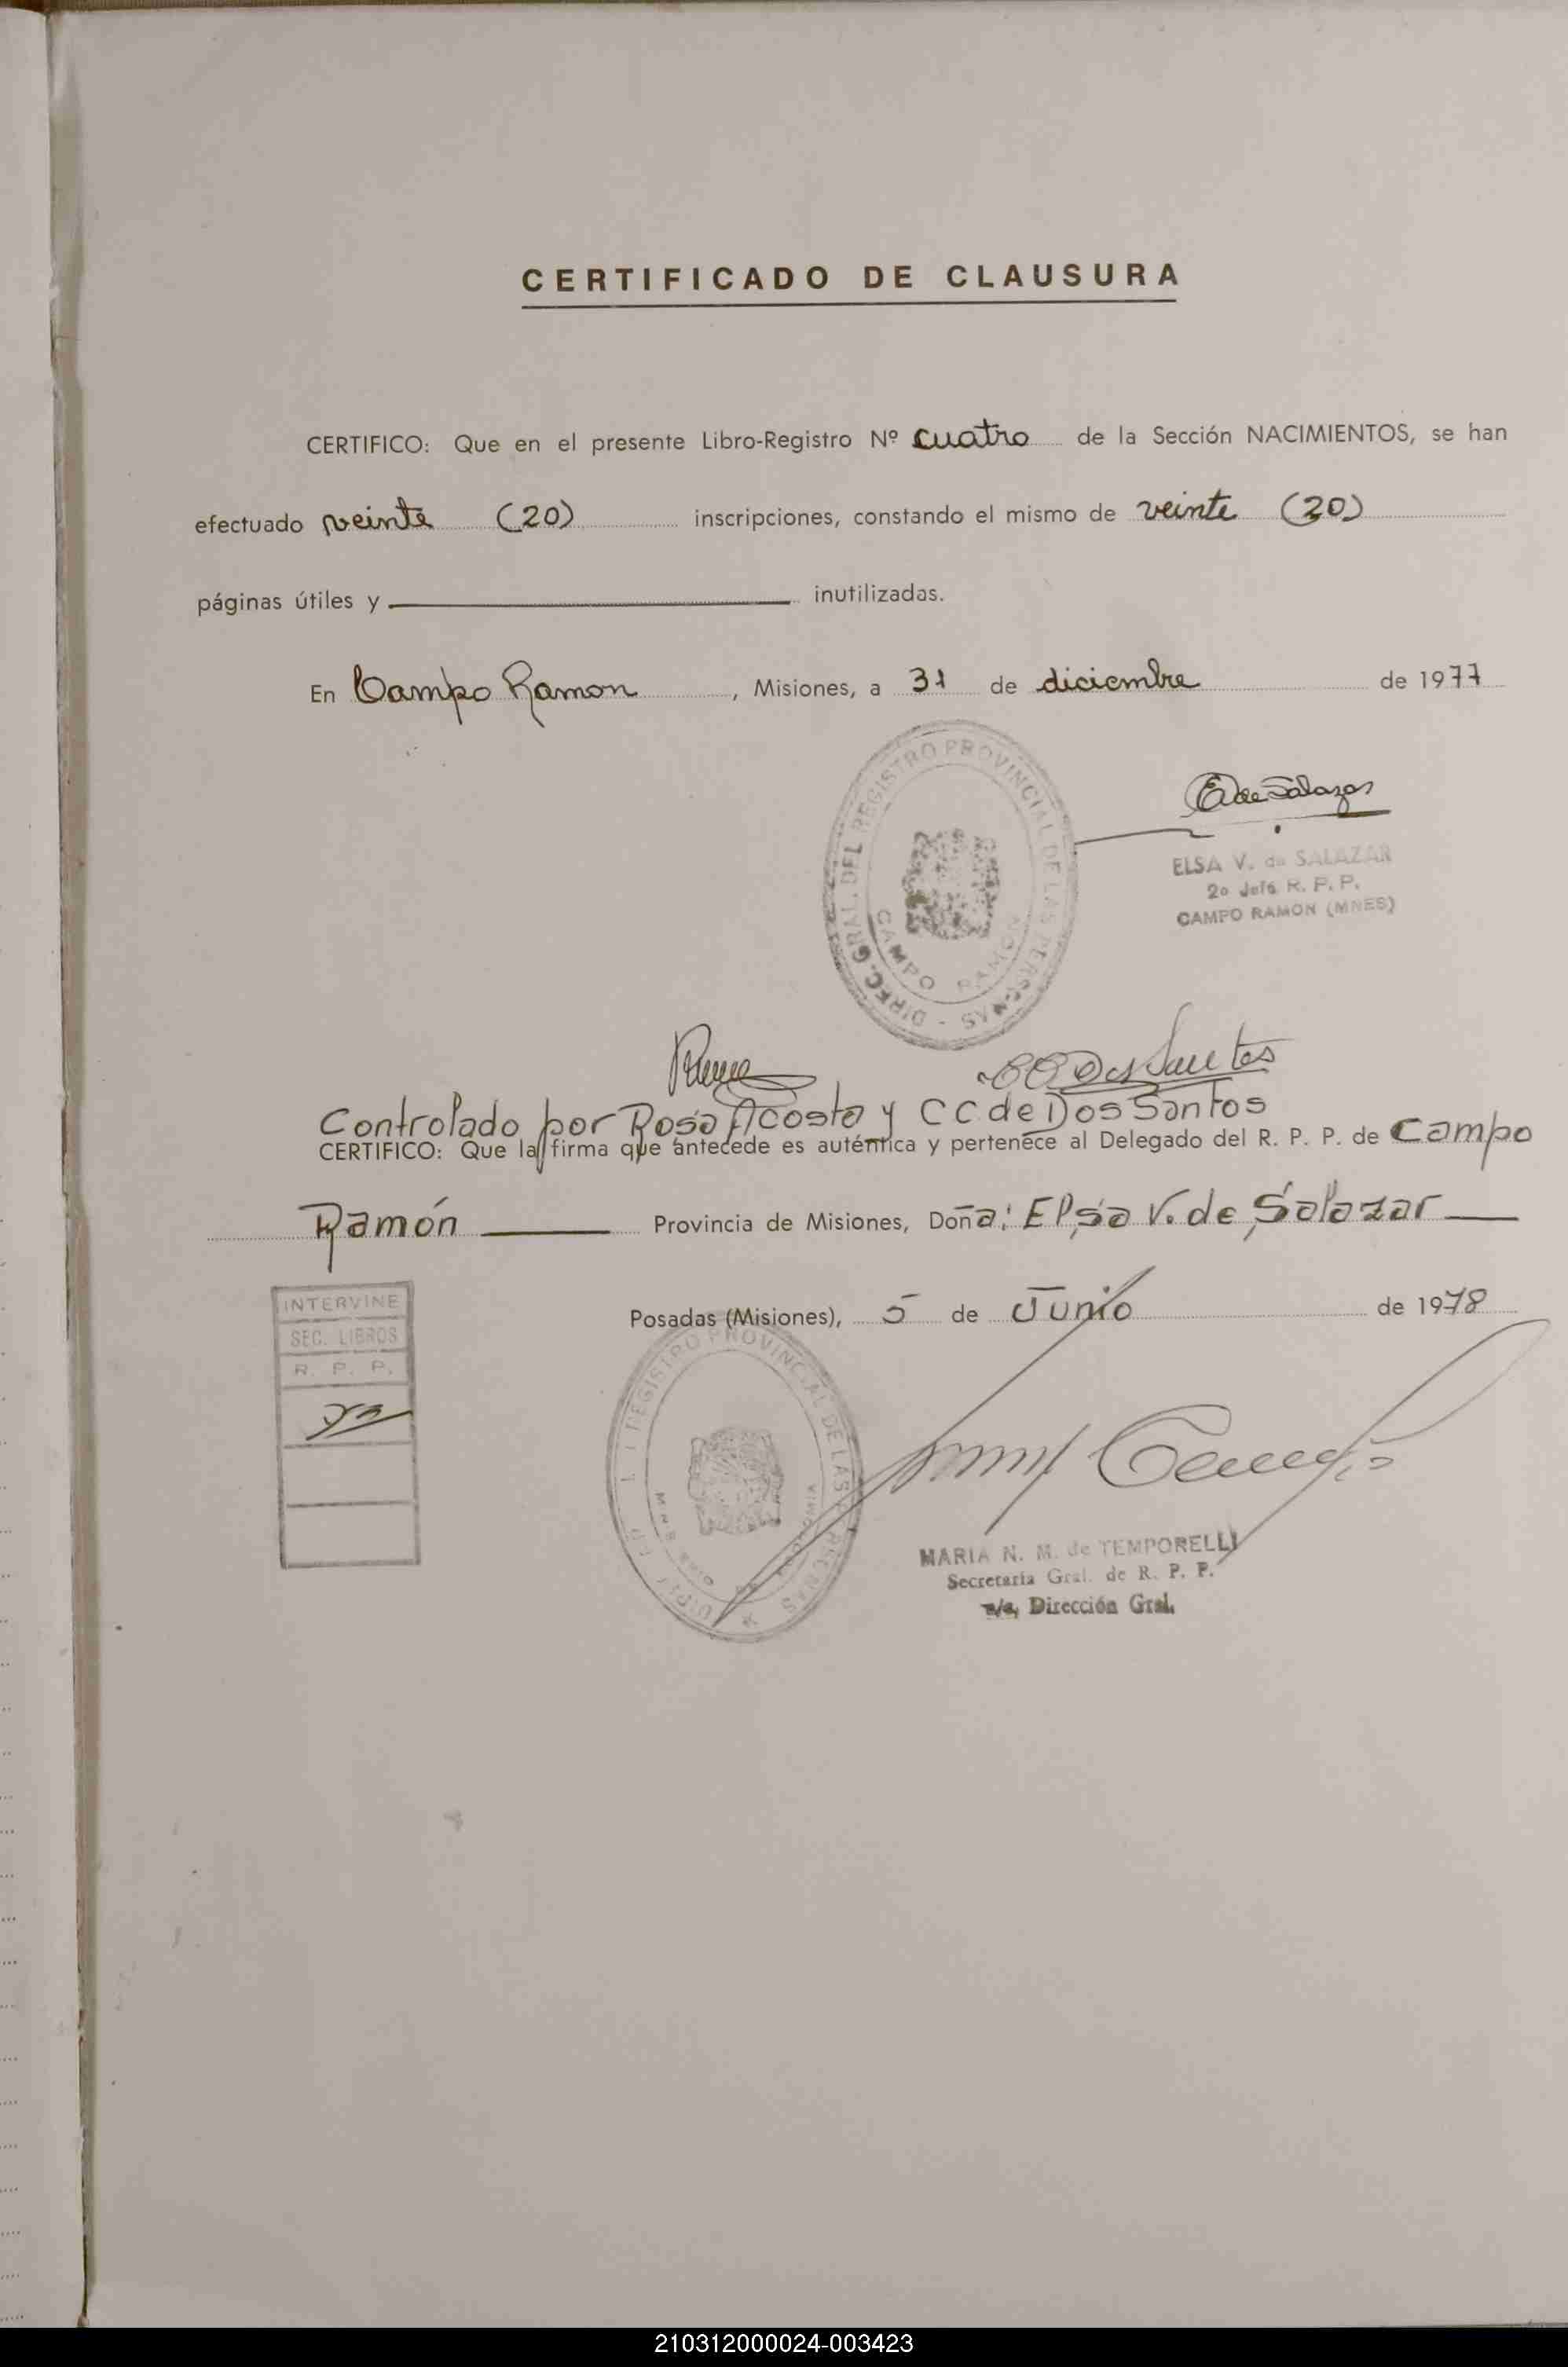 CERTIFICADO DE CLAUSURA
CERTIFICO: Que en el presente Libro-Registro Nº cuatro de la Sección NACIMIENTOS, se han
efectuado veinte (20) inscripciones, constando el mismo de veinte (20)
páginas útiles y inutilizadas.
En Campo Ramon, Misiones, a 31 de diciembre de 1977
DIREC. GRAL. DEL REGISTRO PROVINCIAL DE LAS PERSONAS -
CAMPO RAMON
E de Salazar
ELSA V. de SALAZAR
2o Jefe R. P. P.
CAMPO RAMON (MNES)
Controlado por Rosa Acosta y C C de Dos Santos
CERTIFICO: Que la firma que antecede es auténtica y pertenece al Delegado del R. P. P. de Campo
Ramón Provincia de Misiones, Doña: Elsa V. de Salazar
INTERVINE
SEC. LIBROS
R. P. P.
Posadas (Misiones), 5 de Junio de 1978
REGISTRO PROVINCIAL DE LAS PERSONAS
MARIA N. M. de TEMPORELLI
Secretaria Gral. de R. P. P.
a/c, Dirección Gral.
210312000024-003423